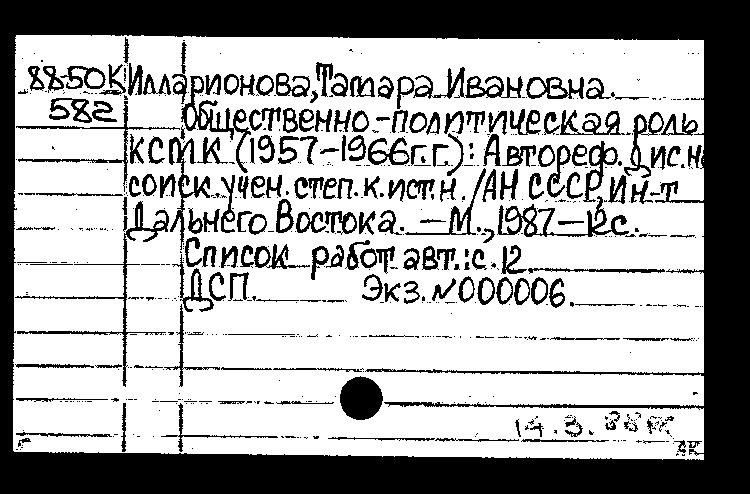 88-50К Илларионова, Тамара Ивановна.
582 Общественно-политическая роль
КСМК (1957-1966г.г.): Автореф. Дис. на
соиск. учен. степ. к. ист. н. /АН СССР, Ин-т
Дальнего Востока. — М., 1987 — 12с.
Список работ авт.: с. 12
ДСП. Экз. №000006.
14.3.88
АК